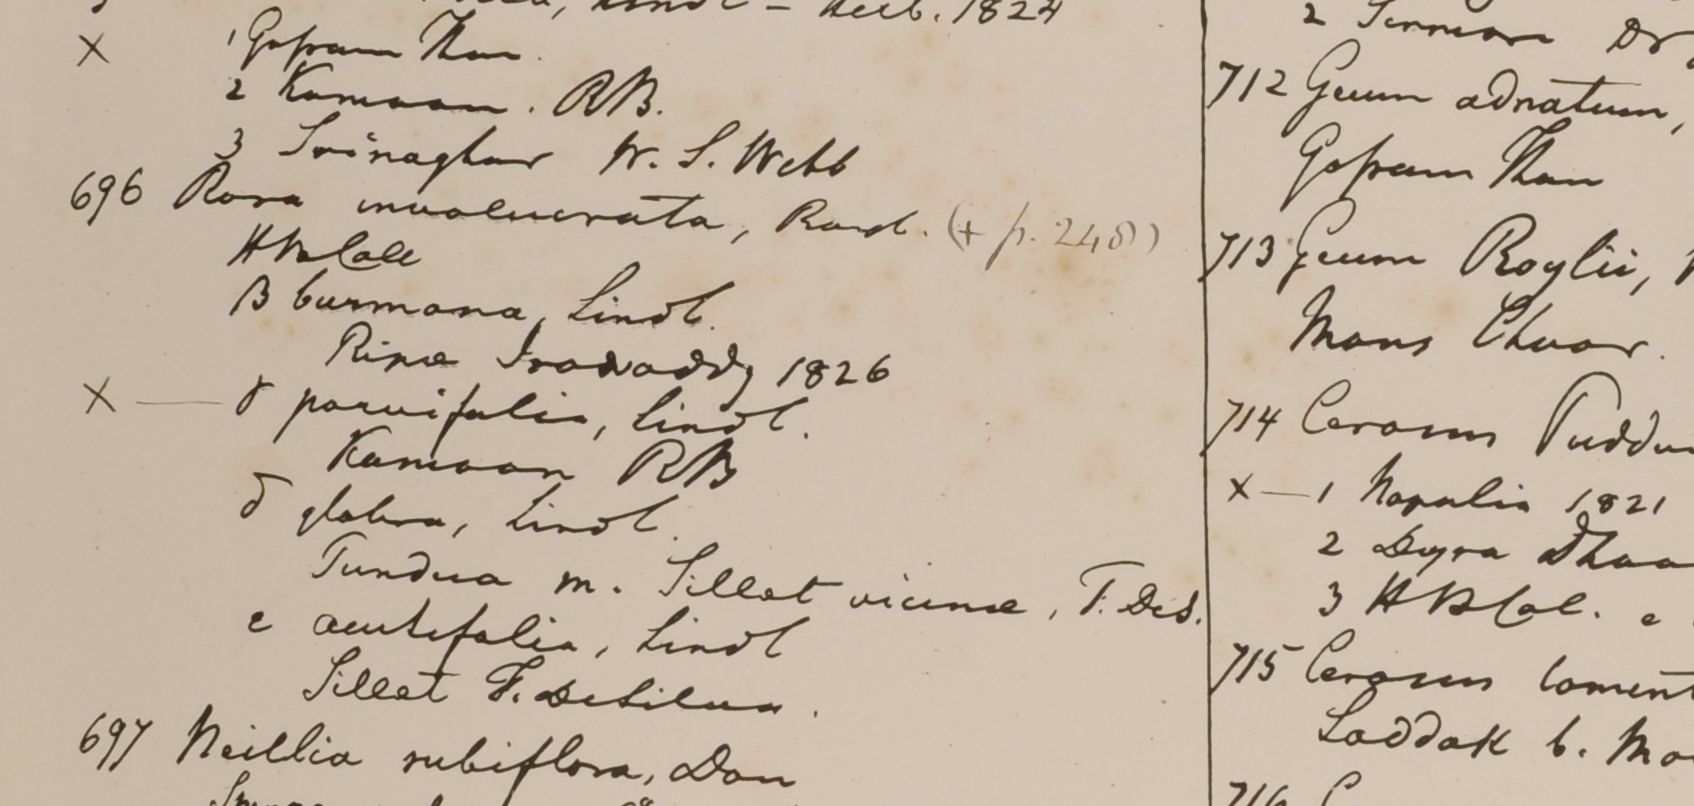 Lindl - Herb. 1824
× 1 Gossam Than.
2 Kamaon. RB.
3 Srinaghur W. S. Webb
696 Rosa involucrata, Roxb. (+ p. 248)
HBCalc
β burmana, Lindl.
Ripæ Irawaddy 1826
× — γ parvifolia, Lindl.
Kamaon RB
δ glabra, Lindl.
Tundua m. Sillet vicinæ, F. DeS.
ε acutifolia, Lindl
Sillet F. deSilva.
697 Neillia rubiflora, Don
2 Sirmore Dr
712 Geum adnatum,
Gossam Than
713 Geum Roylii,
Mons Chuor.
714 Cerasus Puddu
× — 1 Napalia 1821
2 Deyra Dhoo
3 HBCal. e
715 Cerasus toment
Laddak b. Mo
716 C